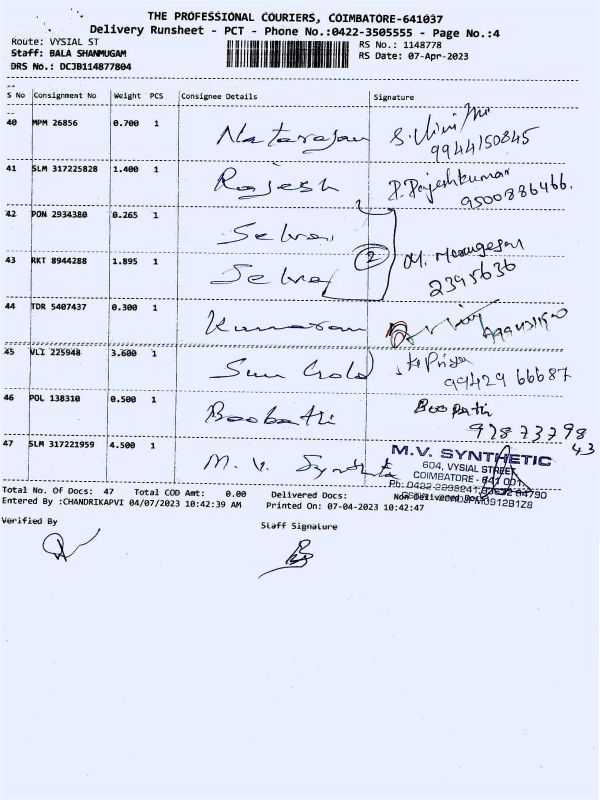 THE PROFESSIONAL COURIERS, COIMBATORE-641037
Delivery Runsheet - PCT - Phone No.:0422-3505555 - Page No.:4
Route: VYSIAL ST
RS No.: 1148778
Staff: BALA SHANMUGAM
RS Date: 07-Apr-2023
DRS No.: DCJB114877804
S No Consignment No Weight PCS Consignee Details Signature
40 MPM 26856 0.700 1 Natarajan
9944150845
41 SLM 317225828 1.400 1 Rajesh P. Rajeshkumar
9500886466.
42 PON 2934380 0.265 1 Selva
43 RKT 8944288 1.895 1 Selva 2 M. Murugesan
2395636
44 TDR 5407437 0.300 1 Kumaran
45 VLI 225948 3.600 1 Sun Gold K Priya
99429 66687
46 POL 138310 0.500 1 Boobathi Boopathi
9787379843
47 SLM 317221959 4.500 1 M. V. Synthetic M.V. SYNTHETIC
604, VYSIAL STREET
COIMBATORE - 641 001.
Total No. Of Docs: 47 Total COD Amt: 0.00 Delivered Docs: Non Delivered Docs:
Entered By :CHANDRIKAPVI 04/07/2023 10:42:39 AM Printed On: 07-04-2023 10:42:47
Verified By Staff Signature